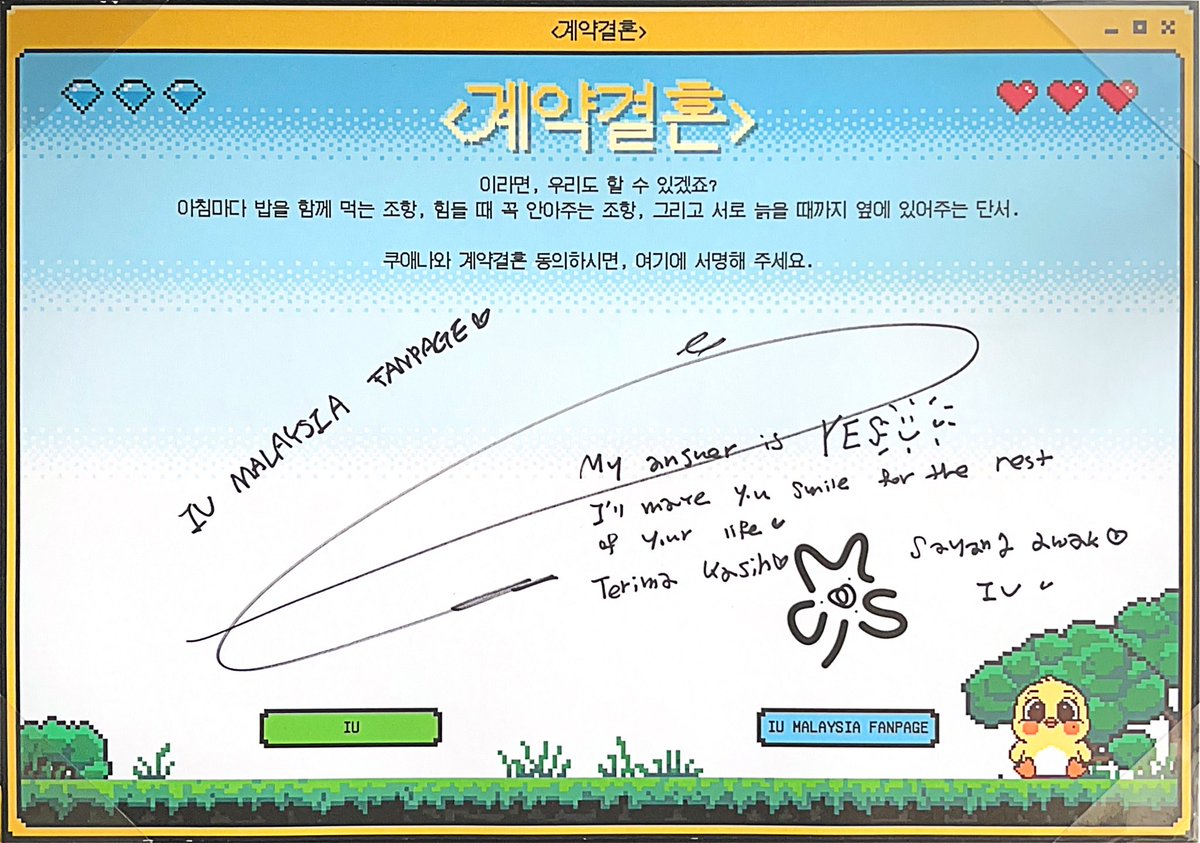 <계약결혼>
<계약결혼>
이라면, 우리도 할 수 있겠죠?
아침마다 밥을 함께 먹는 조항, 힘들 때 꼭 안아주는 조항, 그리고 서로 늙을 때까지 옆에 있어주는 단서.
쿠애나와 계약결혼 동의하시면, 여기에 서명해 주세요.
IU MALAYSIA FANPAGE
My answer is YES
I'll make you smile for the rest
of your life
Terima kasih
Sayang awak
IU
IU
IU MALAYSIA FANPAGE